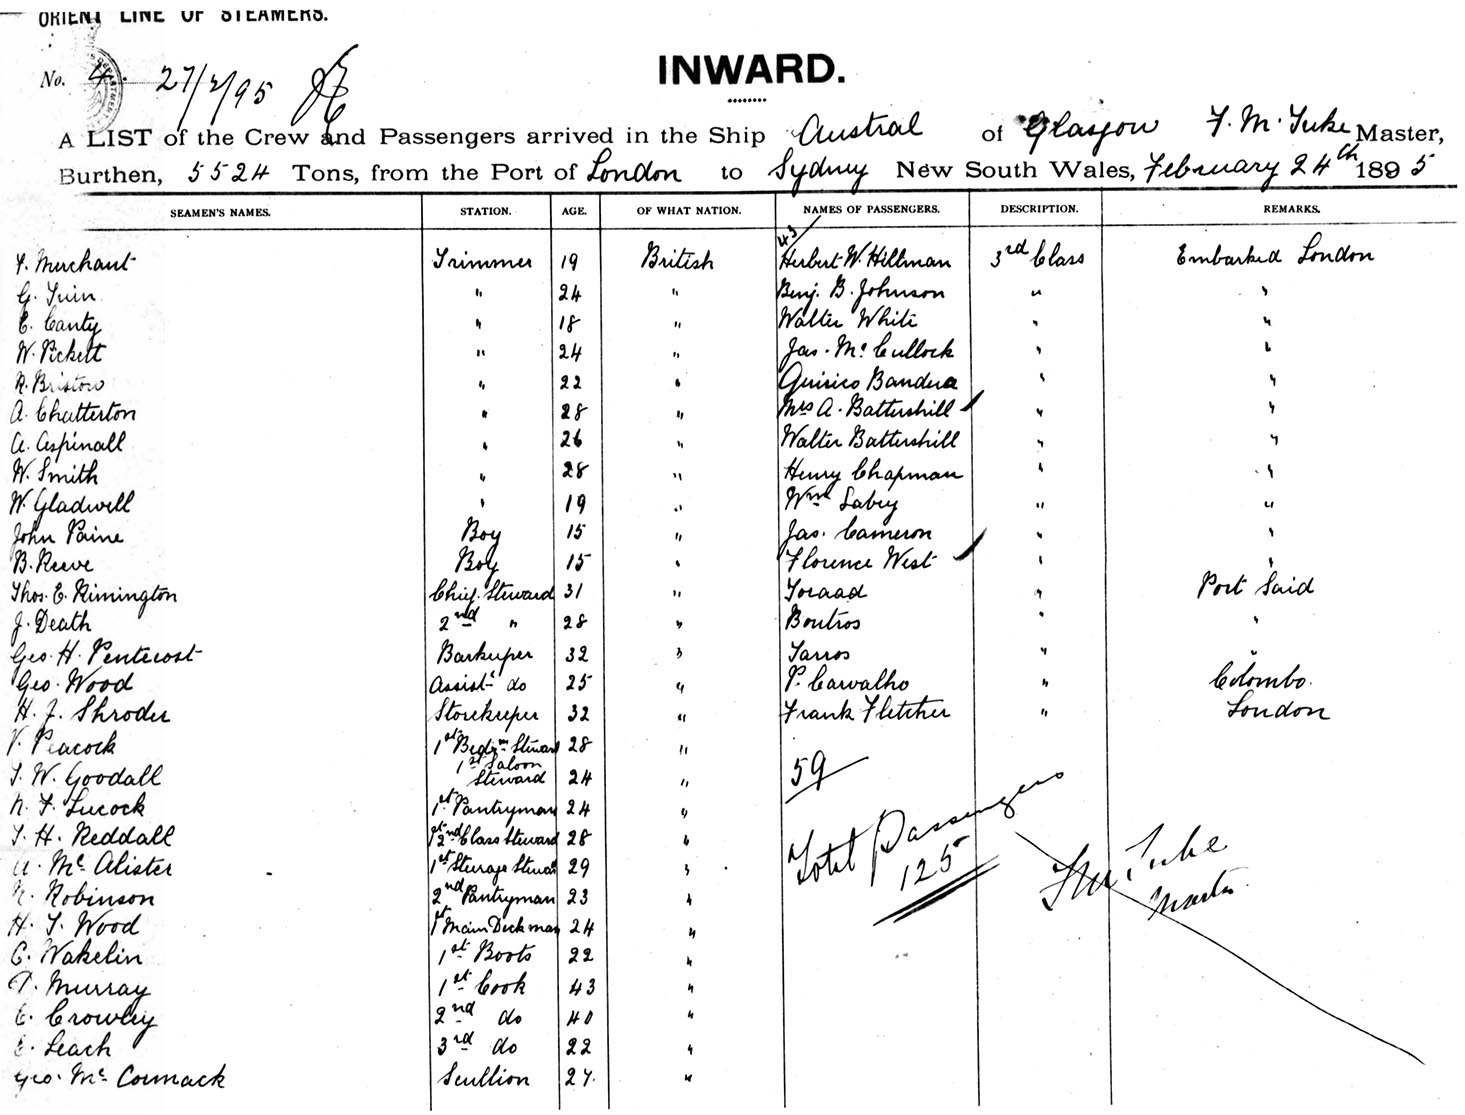 ORIENT LINE OF STEAMERS.
No. 4. 27/2/95
INWARD.
A LIST of the Crew and Passengers arrived in the Ship Austral of Glasgow F. M. Tuke Master,
Burthen, 5524 Tons, from the Port of London to Sydney New South Wales, February 24th 1895
SEAMEN'S NAMES. STATION. AGE. OF WHAT NATION. NAMES OF PASSENGERS. DESCRIPTION. REMARKS.
43
Merchant Trimmer 19 British Herbert W. Hillman 3rd Class Embarked London
G. " 24 " Benj. B. Johnson " "
E. Canty " 18 " Walter White " "
W. Pickett " 24 " Jas. Mc Cullock " "
R. Bristow " 22 " Quirico Bandera " "
A. Chatterton " 28 " Mrs A. Battershill " "
A. Aspinall " 26 " Walter Battershill " "
W. Smith " 28 " Henry Chapman " "
W. Gladwell " 19 " Wm Sabey " "
John Paine Boy 15 " Jas. Cameron " "
B. Reeve Boy 15 " Florence West " "
Thos. E. Rimington Chief Steward 31 " Toraad " Port Said
J. Death 2nd " 28 " Boutros " "
Geo. H. Pentecost Barkeeper 32 " Tarros " "
Geo. Wood Assist. do 25 " P. Carvalho " Colombo.
H. J. Shroder Storekeeper 32 " Frank Fletcher " London
V. Peacock 1st Bedrm Steward 28 "
T. W. Goodall 1st Saloon Steward 24 " 59
N. F. Lucock 1st Pantryman 24 "
T. H. Reddall 1st 2nd Class Steward 28 " Total Passengers
A. Mc Alister 1st Steerage Steward 29 " 125 F. M. Tuke
R. Robinson 2nd Pantryman 23 " Master
H. T. Wood 1st Main Deckman 24 "
C. Wakelin 1st Boots 22 "
Murray 1st Cook 43 "
E. Crowley 2nd do 40 "
E. Leach 3rd do 22 "
Geo. Mc Cormack Scullion 27. "